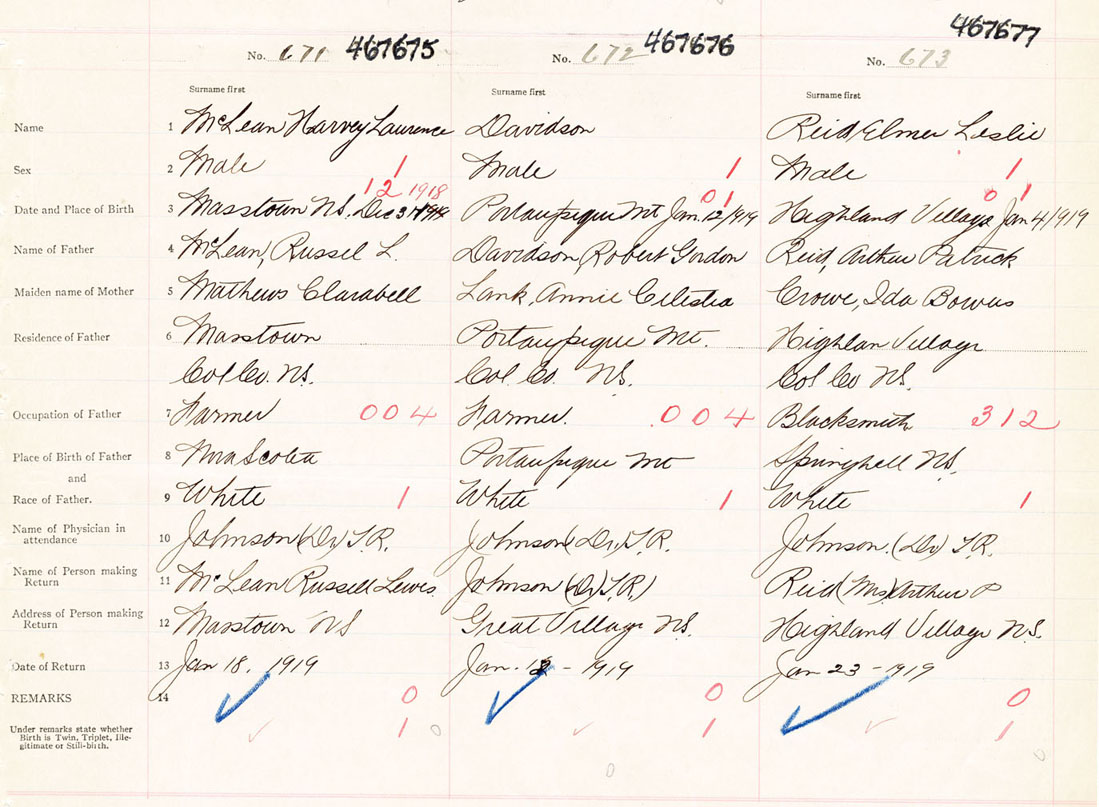 No. 671 467675 No. 672 467676 No. 673 467677
Surname first Surname first Surname first
Name 1 McLean Harvey Laurence Davidson Reid Elmer Leslie
Sex 2 Male 1 Male 1 Male 1
12 1918 01 01
Date and Place of Birth 3 Masstown N.S. Dec 31 Portaupique Mt Jan. 12/1919 Highland Village Jan 4/1919
Name of Father 4 McLean, Russel L. Davidson, Robert Gordon Reid, Arthur Patrick
Maiden name of Mother 5 Mathews Clarabell Lank, Annie Celestia Crowe, Ida Bowas
Residence of Father 6 Masstown Portaupique Mt. Highlan Village
Col. Co. N.S. Col. Co. N.S. Col Co N.S.
Occupation of Father 7 Farmer 004 Farmer. 004 Blacksmith 312
Place of Birth of Father 8 Nova Scotia Portaupique Mt Springhill N.S.
and
Race of Father. 9 White 1 White 1 White 1
Name of Physician in
attendance 10 Johnson (Dr) T.R. Johnson (Dr) T.R. Johnson, (Dr) T.R.
Name of Person making
Return 11 McLean Russell Lewis Johnson (Dr) T.R. Reid (Mrs) Arthur P
Address of Person making
Return 12 Masstown N S Great Village N.S. Highland Village N.S.
Date of Return 13 Jan 18, 1919 Jan. - 1919 Jan 23 - 1919
REMARKS 14 0 0 0
Under remarks state whether
Birth is Twin, Triplet, Ille-
gitimate or Still-birth. 1 0 1 1 0
0